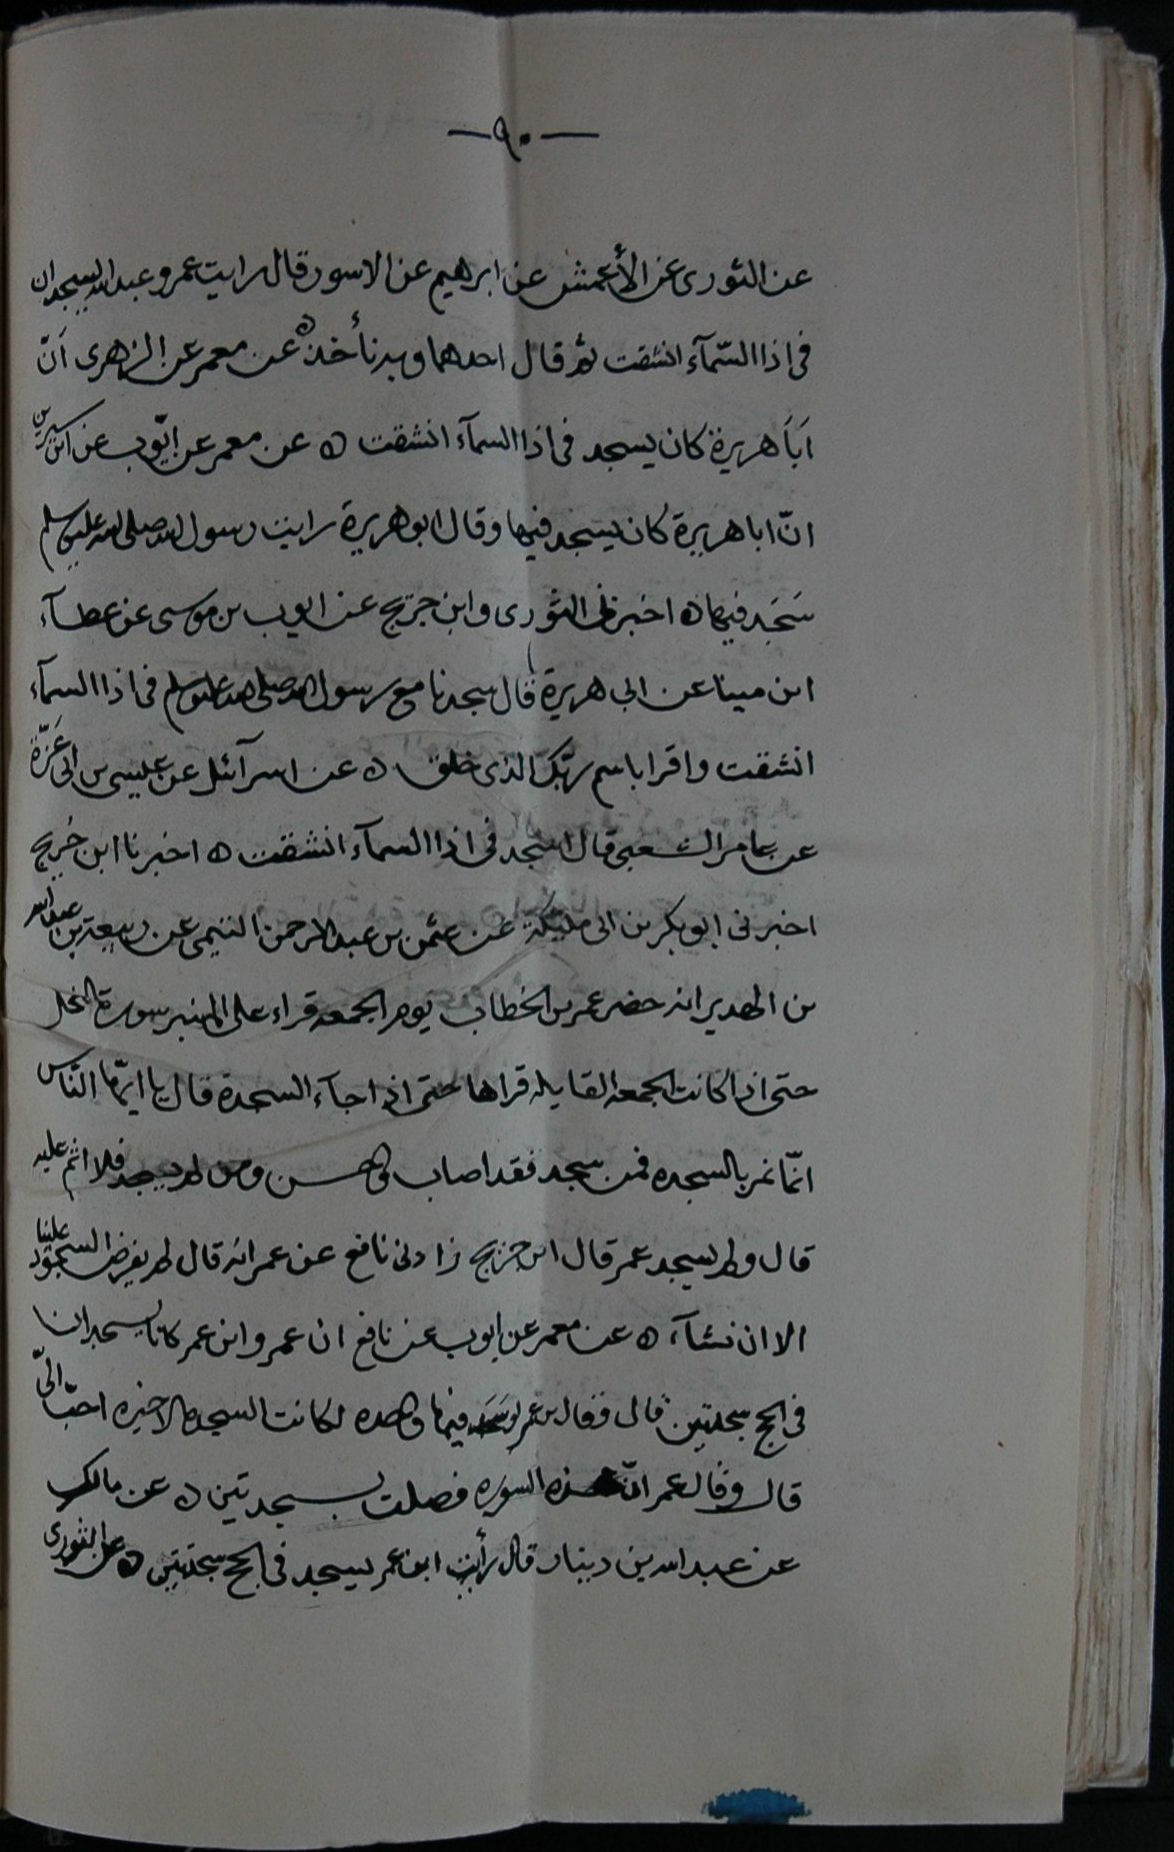 — ٩٠ —
عن الثورى عن الأعمش عن ابرهيم عن الاسود قال رايت عمر و عبد الله يسجدان
فى اذا السّمآء انشقت ثم قال احدهما وبه نأخذ ه عن معمر عن الزهرى اَنّ
اَبَا هريرة كان يسجد فى اذا السمآء انشقت ه عن معمر عن ايّوب عن ابن سيرين
انّ ابا هريرة كان يسجد فيها وقال ابو هريرة رايت رسول الله صلى الله عليه وسلم
سَجَد فيها ه اخبرنى الثورى وابن جريج عن ايوب بن موسى عن عطآء
ابن مينا عن ابى هريرة قال سجدنا مع رسول الله صلى الله عليه وسلم فى اذا السمآء
انشقت واقرا باسم ربّك الذى خلق ه عن اسرآئل عن عيسى بن ابى عَزّة
عن عامر الشعبى قال اسجد فى اذا السمآء انشقت ه اخبرنا ابن جُريج
اخبرنى ابو بكر بن ابى مليكة عن عثمن بن عبد الرحمن التيمى عن ربيعة بن عبد الله
بن الهدير انه حضر عمر بن الخطاب يوم الجمعه قراء على المنبر سورة النحل
حتى اذا كانت الجمعه القابله قراها حتى اذا جآء السجدة قال يا ايّها النّاس
انّما نمر بالسجده فمن سجد فقد اصاب واحسن ومن لم يسجد فلا اثم عليه
قال ولم يسجد عمر قال ابن جريج زادنى نافع عن عمر انه قال لم يفرض السجود علينا
الا ان نشآء ه عن معمر عن ايوب عن نافع ان عمر و ابن عمر كانا يسجدان
فى الحج سجدتين قال وقال بن عمر لو سَجَدت فيها واحده لكانت السجده الاخيره احبّ الىّ
قال وقال عمر انّ هذه السوره فضلت بسجدتين ه عن مالك
عن عبد الله بن دينار قال رأيت ابن عمر يسجد فى الحج سجدتين ه عن الثورى